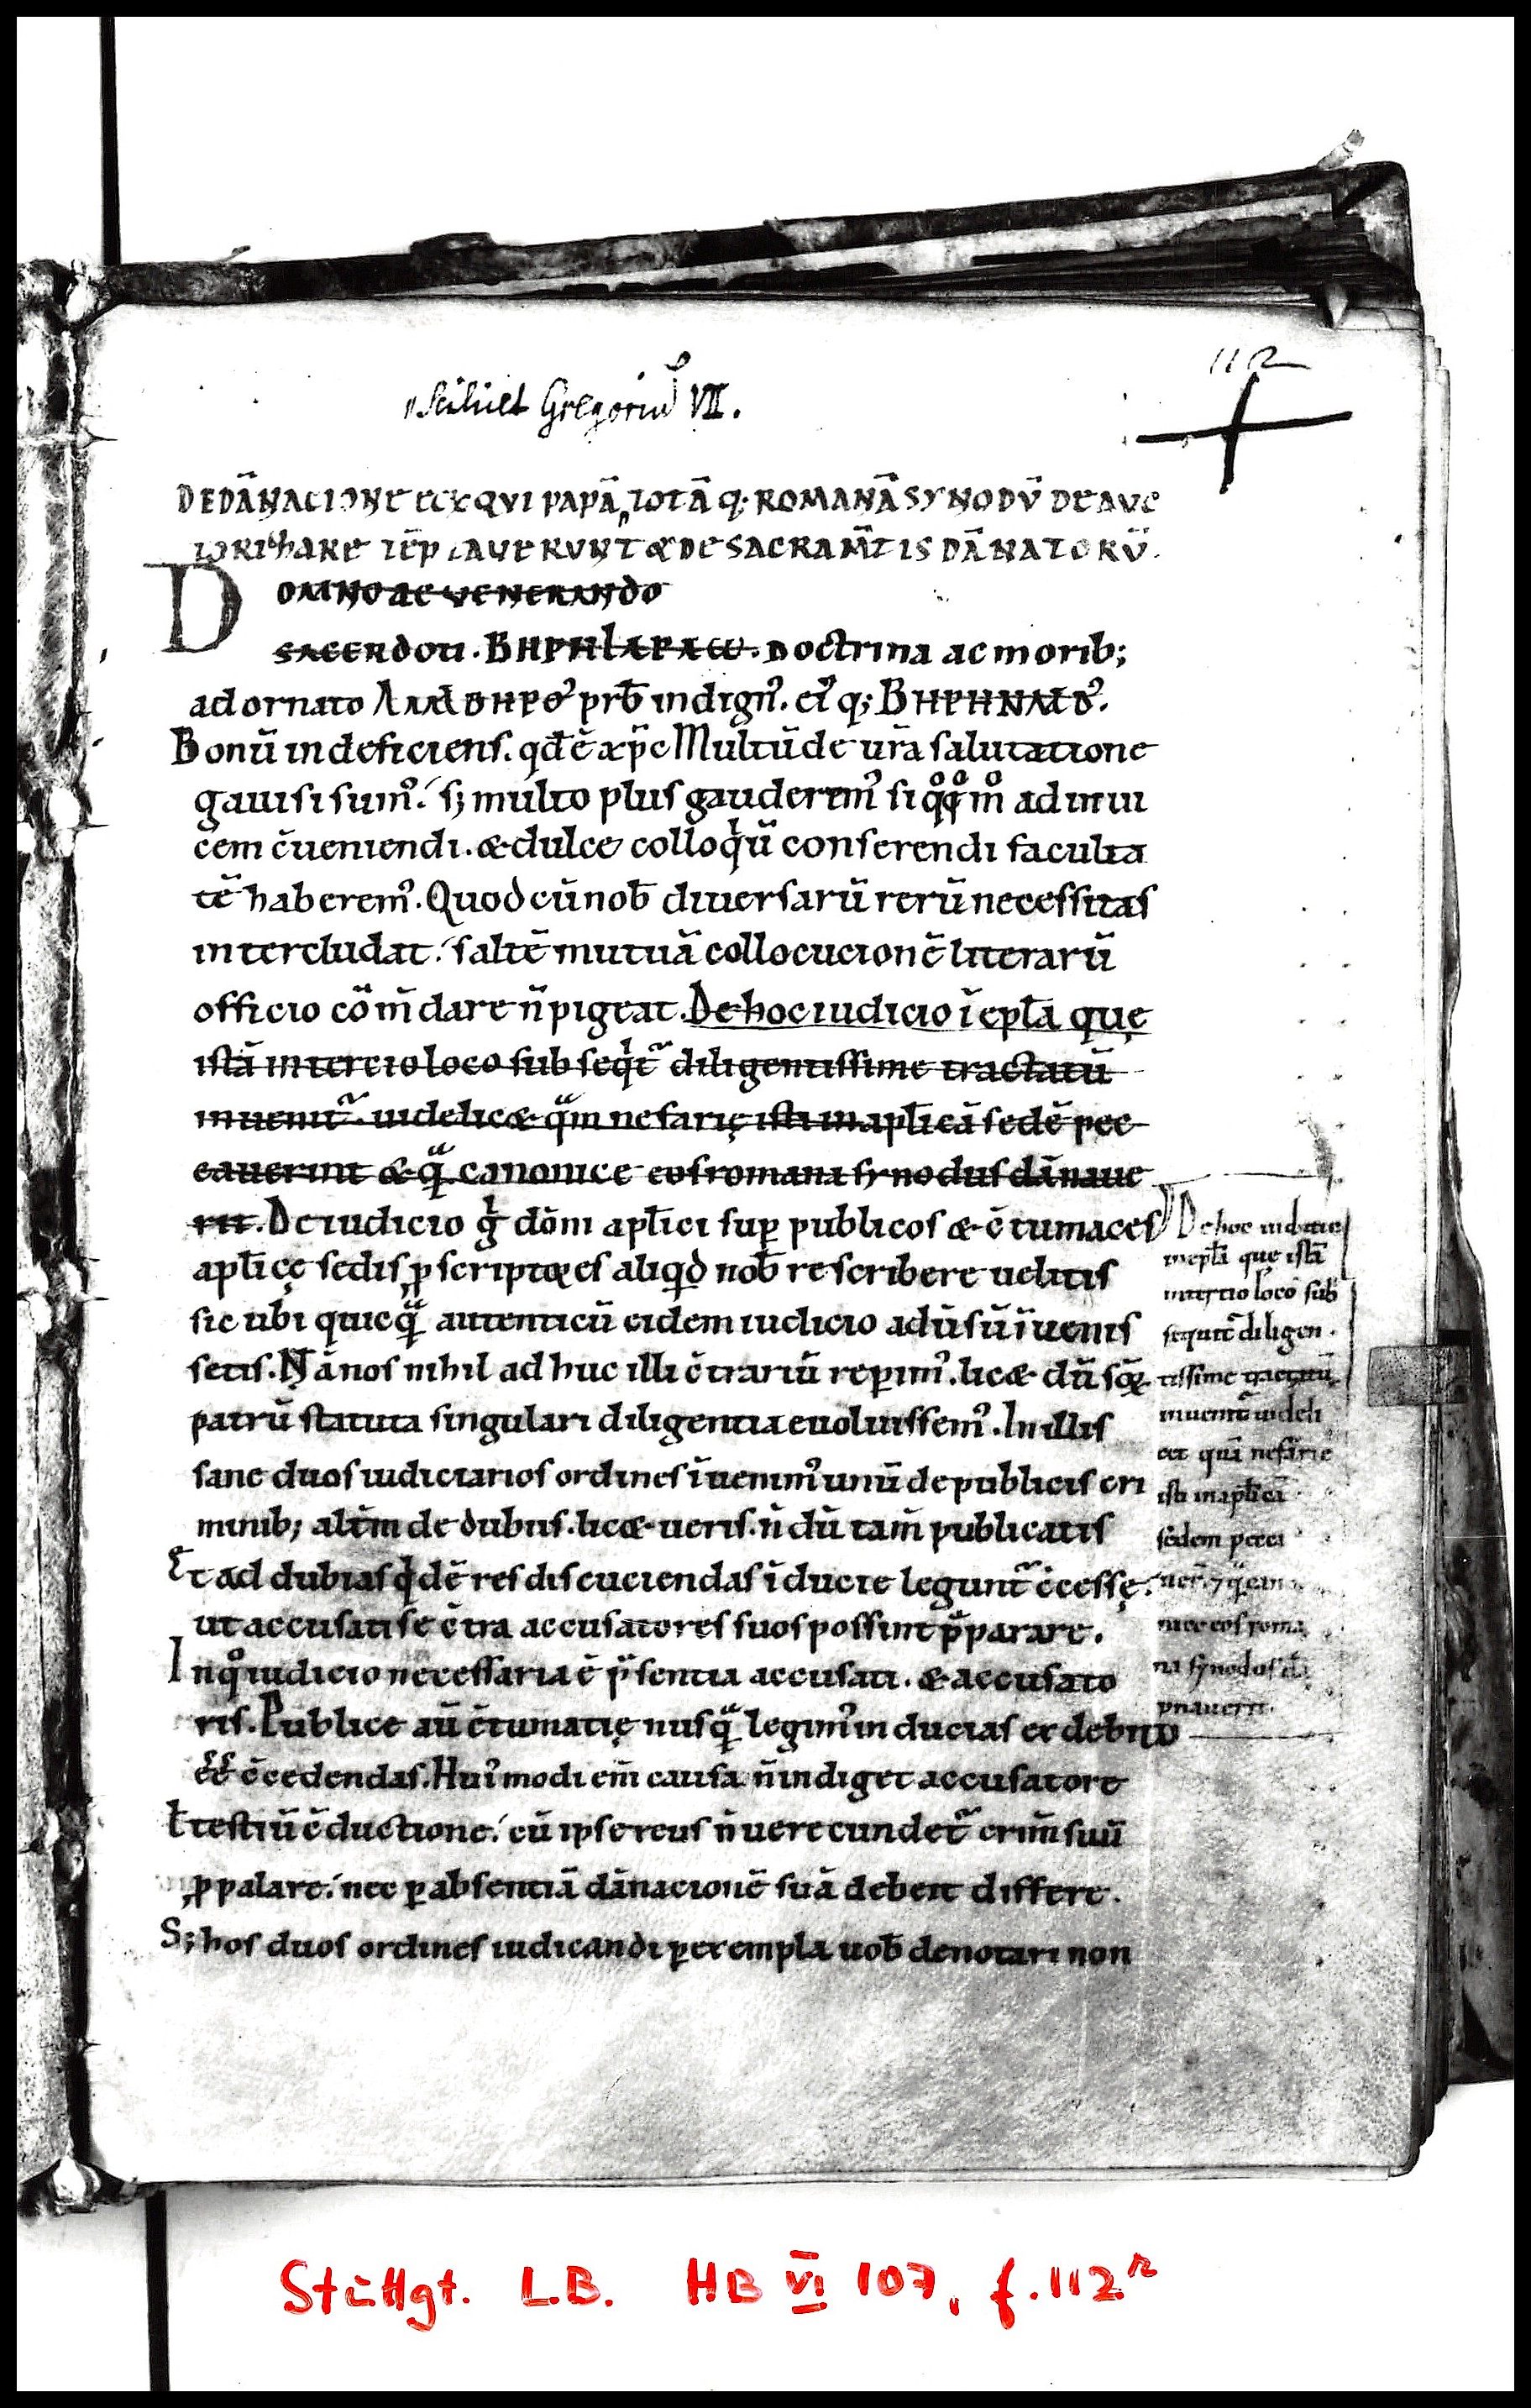 112
scilicet Gregorius VII.
DE DĀNACIONE EOR QVI PAPĀ, TOTĀ Q; ROMANĀ SYNODŪ DE AVC
TORITHARE TĒPTAVERUNT & DE SACRAM̄TIS DĀNATORŪ.
DOMNO AC VENERANDO
SACERDOTI. doctrina ac morib;
ad ornato prb̄ indign᾿. ei᾿ q;
Bonū indeficiens. qd̄ ē xp̄c Multū de ur̄a salutatione
gauisi sum᾿. s; multo plus gauderem᾿ si qͦqͦ mͦ ad inui
cem c̄ueniendi. & dulce colloqͥū conserendi faculta
tē haberem᾿. Quod cū nob̄ diuersarū rerū necessitas
intercludat. saltē mutuā collocucionē literarū
officio cōm̄dare n̄ pigeat. De hoc iudicio ī epl̄a quę
istā in tercio loco subseqͥt᷑ diligentissime tractatū
inuenit᷑. uidelic& qᷓm nefarię isti in apl̄icā sedē pec
cauerint & qᷓ canonice eos romana synodus dānaue
rit. De iudicio gͥ dōm̄ apl̄ici sup̱ publicos & c̄tumaces
apl̄icę sedis ꝓscriptores aliqͥd nob̄ rescribere uelitis
sic ubi quicqᷓ autenticū eidem iudicio aduͥsū īuenis
setis. Nā nos nihil ad huc illi c̄trariū rep̱im᾿. lic& dū scōꝝ
patrū statuta singulari diligentia euoluissem᾿. In illis
sane duos iudiciarios ordines īuenim᾿ unū de publicis cri
minib; alt̄m de dubiis. lic& ueris. n̄ dū tam̄ publicatis
Et ad dubias qͥdē res discuciendas īducie legunt᷑ c̄cessę.
ut accusati se c̄tra accusatores suos possint pᷓparare.
In qͦ iudicio necessaria ē pᷓsentia accusati. & accusato
ris. Publice aū c̄tumacię nusqᷓ legim᾿ inducias ex debito
ee͞ c̄cedendas. Hui᾿modi em̄ causa n̄ indiget accusatore
ł testiū c̄ductione. cū ipse reus n̄ uerecundet᷑ crim̄ suū
ꝓpalare. nec p̱ absentiā dānacionē suā debeit differe.
S; hos duos ordines iudicandi p̱ exempla uob̄ denotari non
De hoc iudicio
in epl̄a quę istā
in tertio loco sub
sequit᷑ diligen
tissime tractatū
inuenit᷑ uideli
cet quā nefarie
isti in apl̄icā
sedem pecca
uer̄. ⁊ qᷓ cano
nice eos roma
na synodus dā
pnauerit.
Stuttgt. L.B. HB VI 107, f. 112ʳ